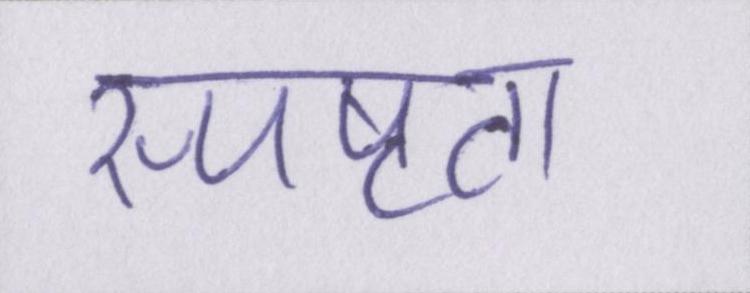 स्पष्टता